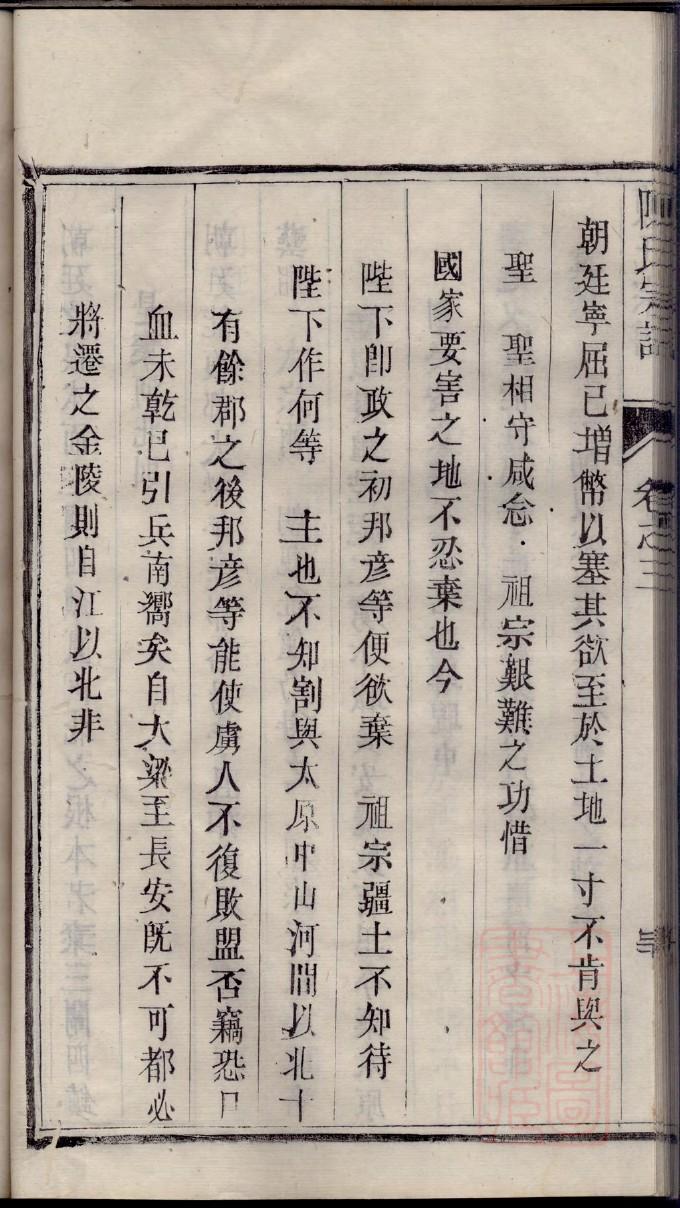 陳氏家記 卷之三
朝廷寧屈己增幣以塞其欲至於土地一寸不肯與之
聖 聖相守咸念 祖宗艱難之功惜
國家要害之地不忍棄也今
陛下卽政之初邦彥等便欲棄 祖宗疆土不知待
陛下作何等 主也不知割與太原中山河間以北十
有餘郡之後邦彥等能使虜人不復敗盟否竊恐口
血未乾已引兵南嚮矣自大梁至長安旣不可都必
將遷之金陵則自江以北非